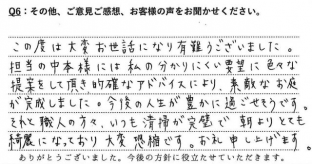 Q6：その他、ご意見ご感想、お客様の声をお聞かせください。
この度は大変お世話になり有難うございました。
担当の中本様には私の分かりにくい要望に色々な
提案をして頂き的確なアドバイスにより、素敵なお庭
が完成しました。今後の人生が豊かに過ごせそうです。
それと職人の方々、いつも清掃が完璧で朝よりとても
綺麗になっており大変恐縮です。お礼申し上げます。
ありがとうございました。今後の方針に役立たせていただきます。